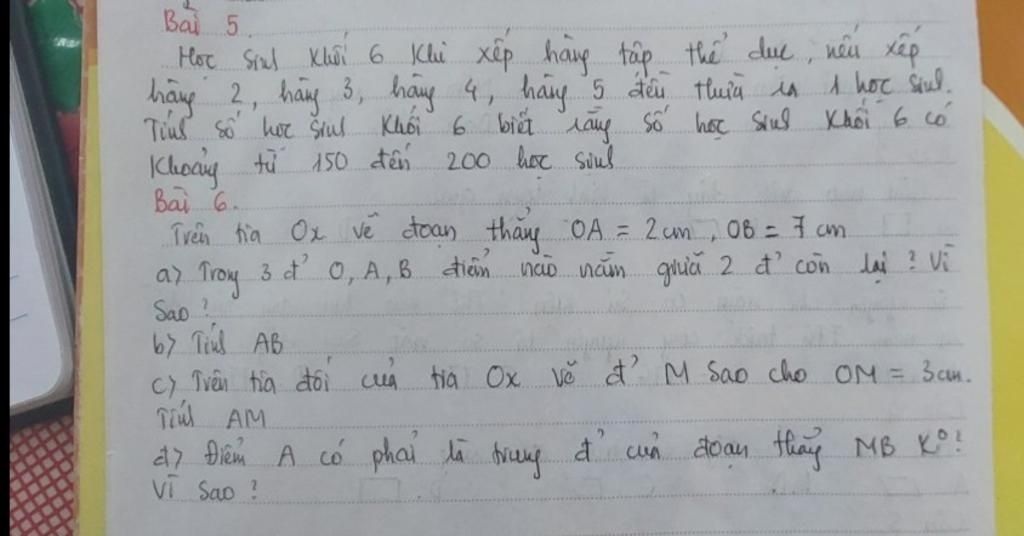 Bài 5.
Học sinh khối 6 khi xếp hàng tập thể dục, nếu xếp
hàng 2, hàng 3, hàng 4, hàng 5 đều thừa ra 1 học sinh.
Tính số học sinh khối 6 biết rằng số học sinh khối 6 có
khoảng từ 150 đến 200 học sinh
Bài 6.
Trên tia Ox vẽ đoạn thẳng OA = 2cm, OB = 7 cm
a) Trong 3 đ' O, A, B điểm nào nằm giữa 2 đ' còn lại ? Vì
Sao ?
b) Tính AB
c) Trên tia đối của tia Ox vẽ đ' M sao cho OM = 3cm.
Tính AM
d) Điểm A có phải là trung đ' của đoạn thẳng MB K° ?
Vì sao ?